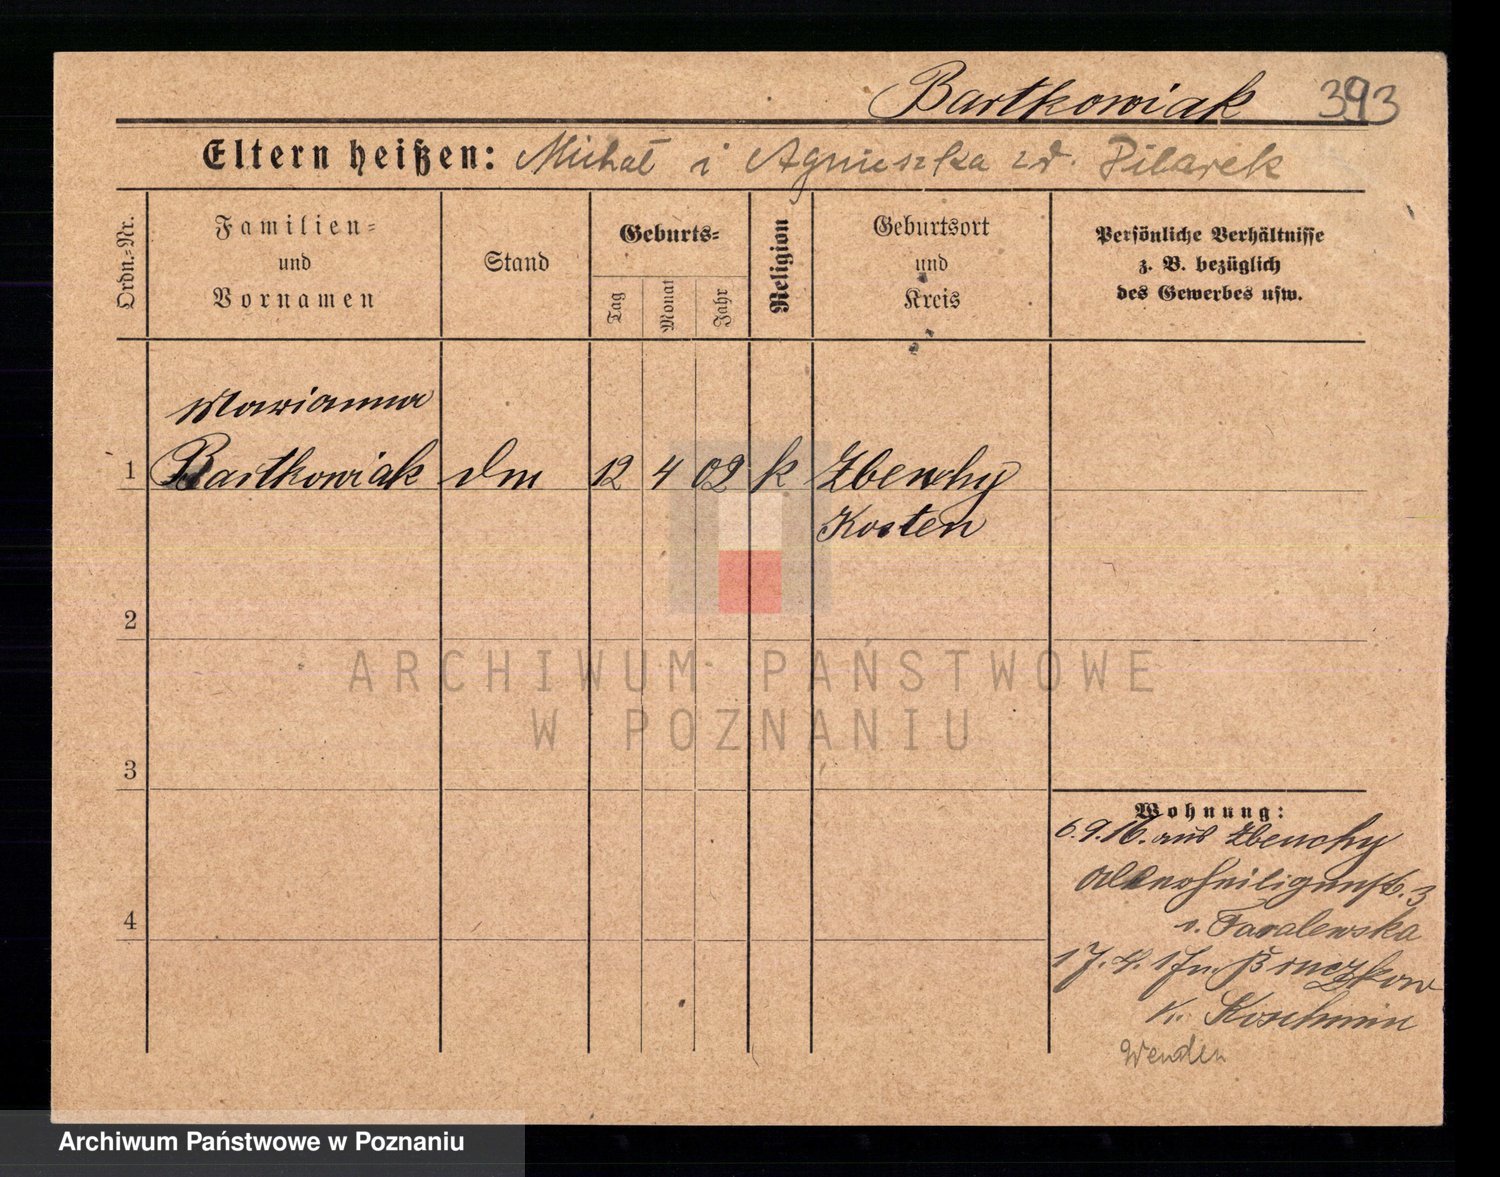 Bartkowiak 393
Eltern heißen: Michał i Agnieszka zd. Pilarek
Ordn.-Nr.
Familien-
und
Vornamen
Stand
Geburts-
Tag
Monat
Jahr
Religion
Geburtsort
und
Kreis
Persönliche Verhältnisse
z. B. bezüglich
des Gewerbes usw.
Marianna
1 Bartkowiak dm 12 4 02 k Zbenchy
Kosten
2
3
4
Wohnung:
6.9.16. aus Zbenchy
Allerheiligenstr. 3
17.4.17 n.
K. Koschmin
Wenden
ARCHIWUM PAŃSTWOWE
W POZNANIU
Archiwum Państwowe w Poznaniu